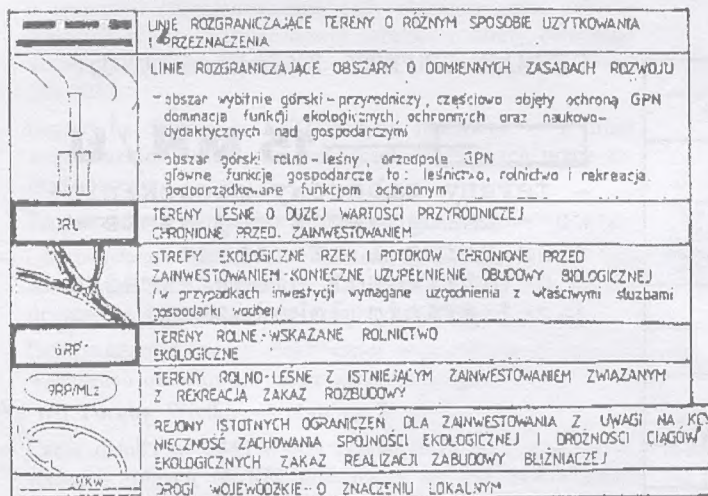 LINIE ROZGRANICZAJĄCE TERENY O RÓŻNYM SPOSOBIE UŻYTKOWANIA
I PRZEZNACZENIA
LINIE ROZGRANICZAJĄCE OBSZARY O ODMIENNYCH ZASADACH ROZWOJU
- obszar wybitnie górski - przyrodniczy, częściowo objęty ochroną GPN
dominacja funkcji ekologicznych, ochronnych oraz naukowo-
dydaktycznych nad gospodarczymi
- obszar górski rolno - leśny, przedpole GPN
główne funkcje gospodarcze to: leśnictwo, rolnictwo i rekreacja
podporządkowane funkcjom ochronnym
TERENY LEŚNE O DUŻEJ WARTOŚCI PRZYRODNICZEJ
CHRONIONE PRZED. ZAINWESTOWANIEM
STREFY EKOLOGICZNE RZEK I POTOKÓW CHRONIONE PRZED
ZAINWESTOWANIEM - KONIECZNE UZUPEŁNIENIE OBUDOWY BIOLOGICZNEJ
/w przypadkach inwestycji wymagane uzgodnienia z właściwymi służbami
gospodarki wodnej/
6RP
TERENY ROLNE - WSKAZANE ROLNICTWO
EKOLOGICZNE
9RP/MLz
TERENY ROLNO-LEŚNE Z ISTNIEJĄCYM ZAINWESTOWANIEM ZWIĄZANYM
Z REKREACJĄ ZAKAZ ROZBUDOWY
REJONY ISTOTNYCH OGRANICZEŃ DLA ZAINWESTOWANIA Z UWAGI NA KO
NIECZNOŚĆ ZACHOWANIA SPÓJNOŚCI EKOLOGICZNEJ I DROŻNOŚCI CIĄGÓW
EKOLOGICZNYCH ZAKAZ REALIZACJI ZABUDOWY BLIŹNIACZEJ
DROGI WOJEWÓDZKIE - O ZNACZENIU LOKALNYM